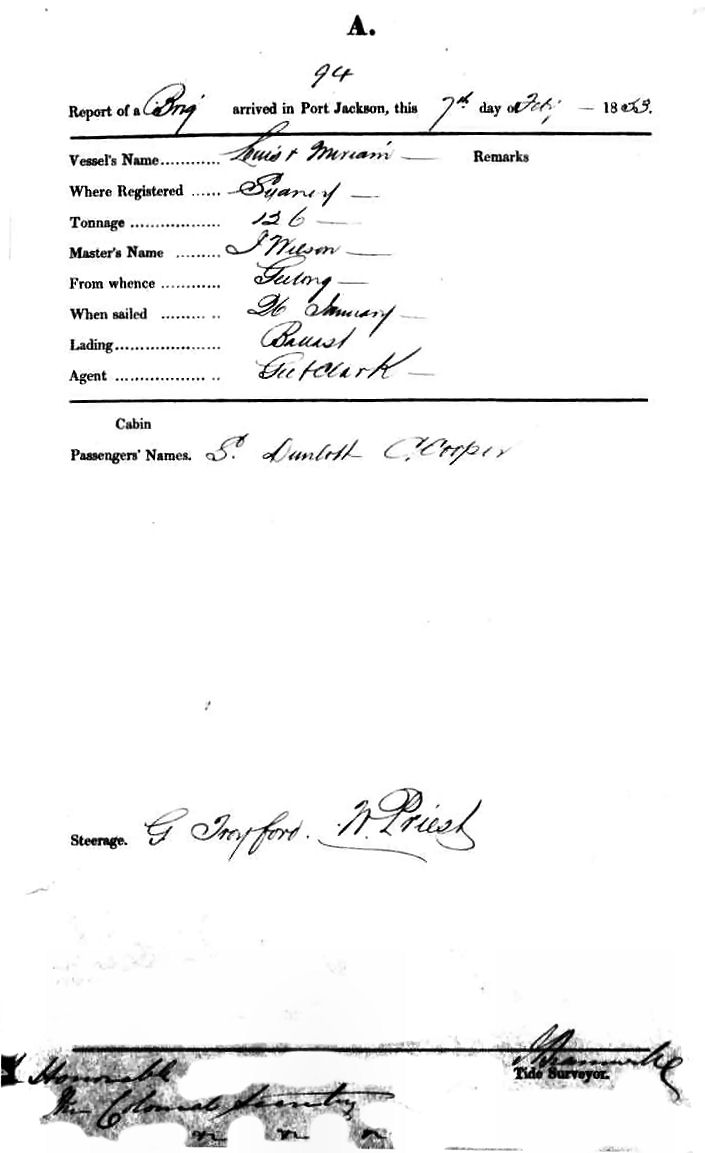 A.
94
Report of a Brig arrived in Port Jackson, this 7th day of Feby — 1853.
Vessel's Name............ Louis & Miriam — Remarks
Where Registered ...... Sydney —
Tonnage .................. 126 —
Master's Name ......... J Wilson —
From whence ............ Geelong —
When sailed ......... .. 26 January —
Lading..................... Ballast
Agent ................. .. Gee & Clark —
Cabin
Passengers' Names. S. C. Cooper
Steerage. G W. Priest
Tide Surveyor.
Honorable
The Colonial Secretary